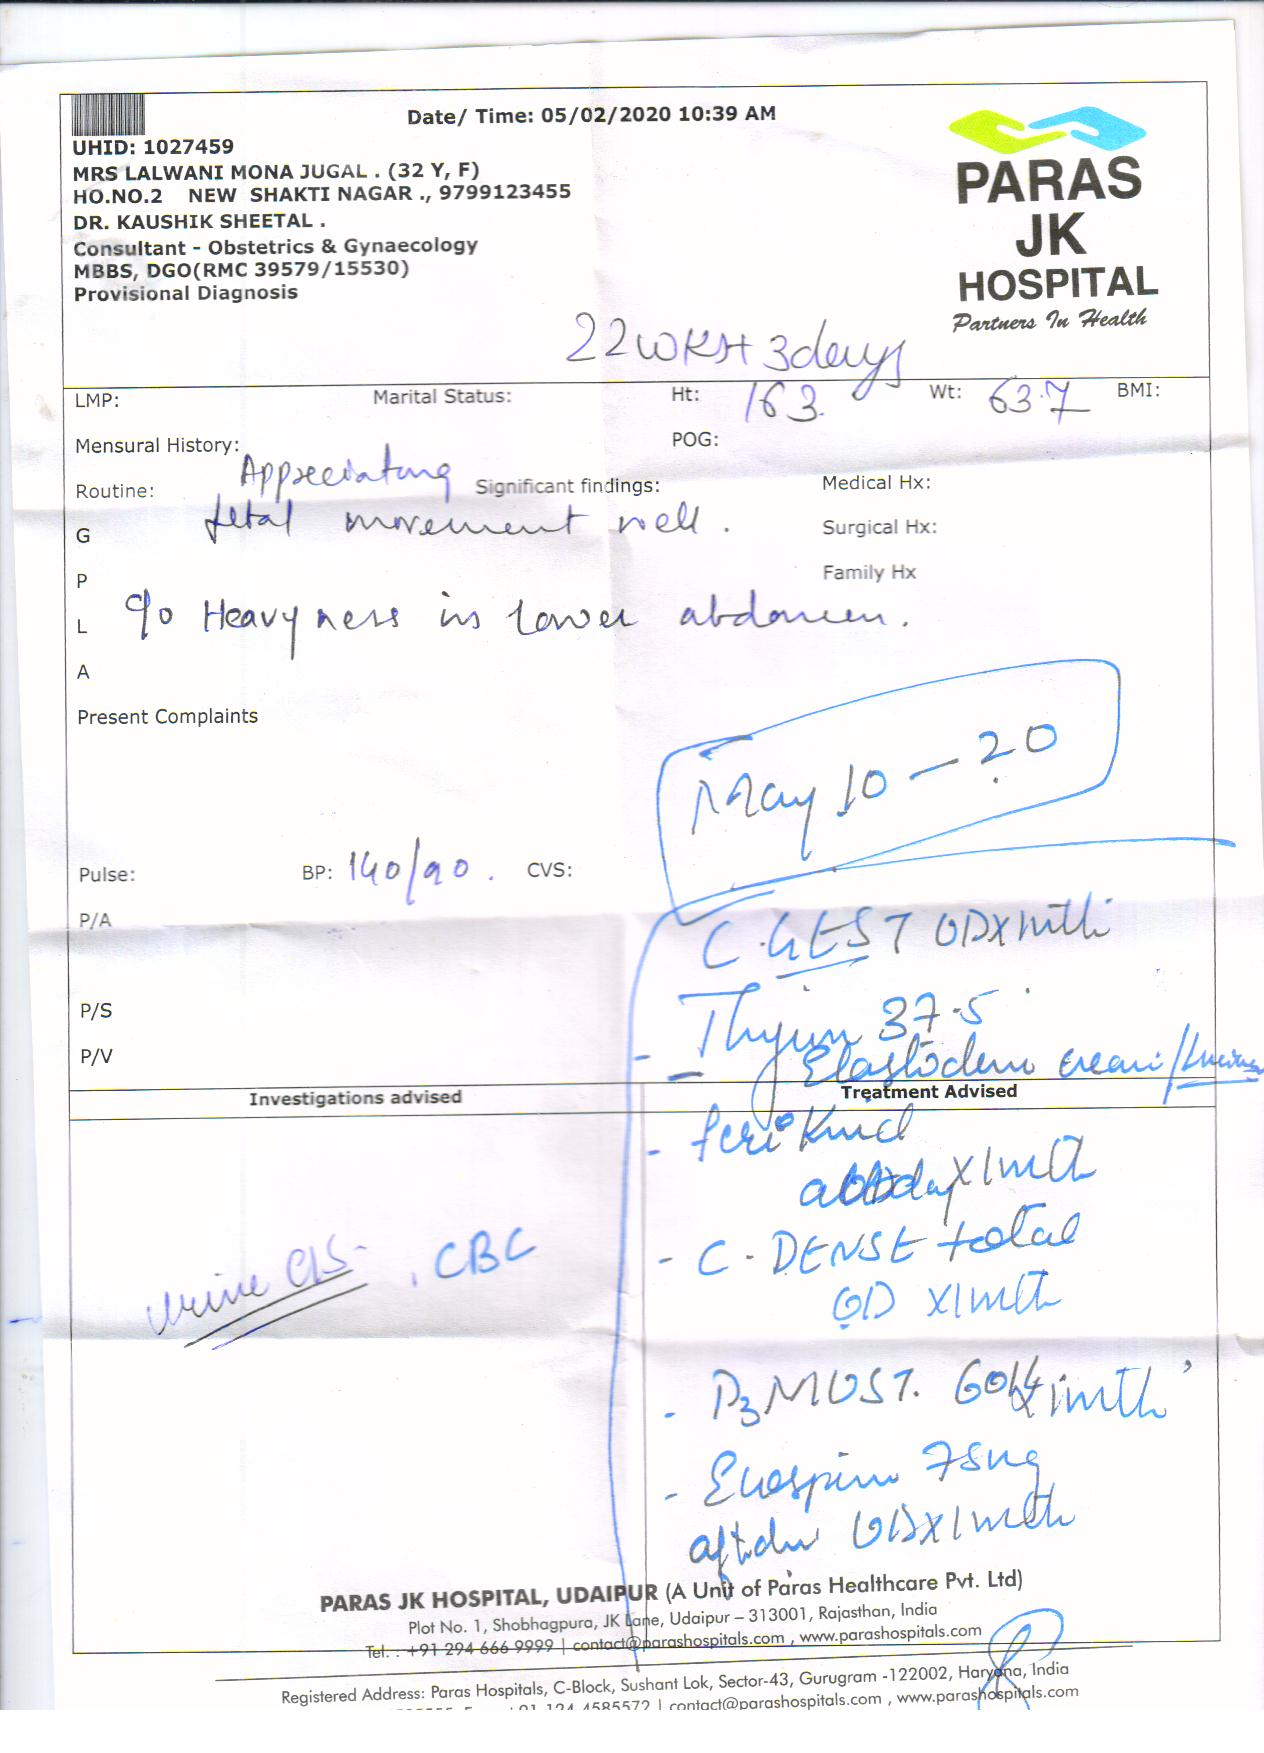 Date/ Time: 05/02/2020 10:39 AM
UHID: 1027459
MRS LALWANI MONA JUGAL . (32 Y, F)
HO.NO.2 NEW SHAKTI NAGAR ., 9799123455
DR. KAUSHIK SHEETAL .
Consultant - Obstetrics & Gynaecology
MBBS, DGO(RMC 39579/15530)
Provisional Diagnosis
PARAS
JK
HOSPITAL
Partners In Health
22WK+3days
LMP: Marital Status: Ht: 163 Wt: 63.7 BMI:
Mensural History: POG:
Appreciating
Routine: Significant findings: Medical Hx:
fetal movement well.
G Surgical Hx:
P Family Hx
L c/o Heavyness in lower abdomen.
A
Present Complaints
May 10 - 20
Pulse: BP: 140/90. CVS:
P/A
C. GEST OD X 1mth
P/S
37.5
P/V
cream/
Investigations advised Treatment Advised
X 1mth
- C - DENSE total
OD X1mth
urine C/S , CBC
- D3 MUST. 60K X 1mth
- Ecospirin 75mg
OD X 1mth
PARAS JK HOSPITAL, UDAIPUR (A Unit of Paras Healthcare Pvt. Ltd)
Plot No. 1, Shobhagpura, JK Lane, Udaipur – 313001, Rajasthan, India
Tel. : +91 294 666 9999 | contact@parashospitals.com , www.parashospitals.com
Registered Address: Paras Hospitals, C-Block, Sushant Lok, Sector-43, Gurugram -122002, Haryana, India
124 4585572 | contact@parashospitals.com , www.parashospitals.com